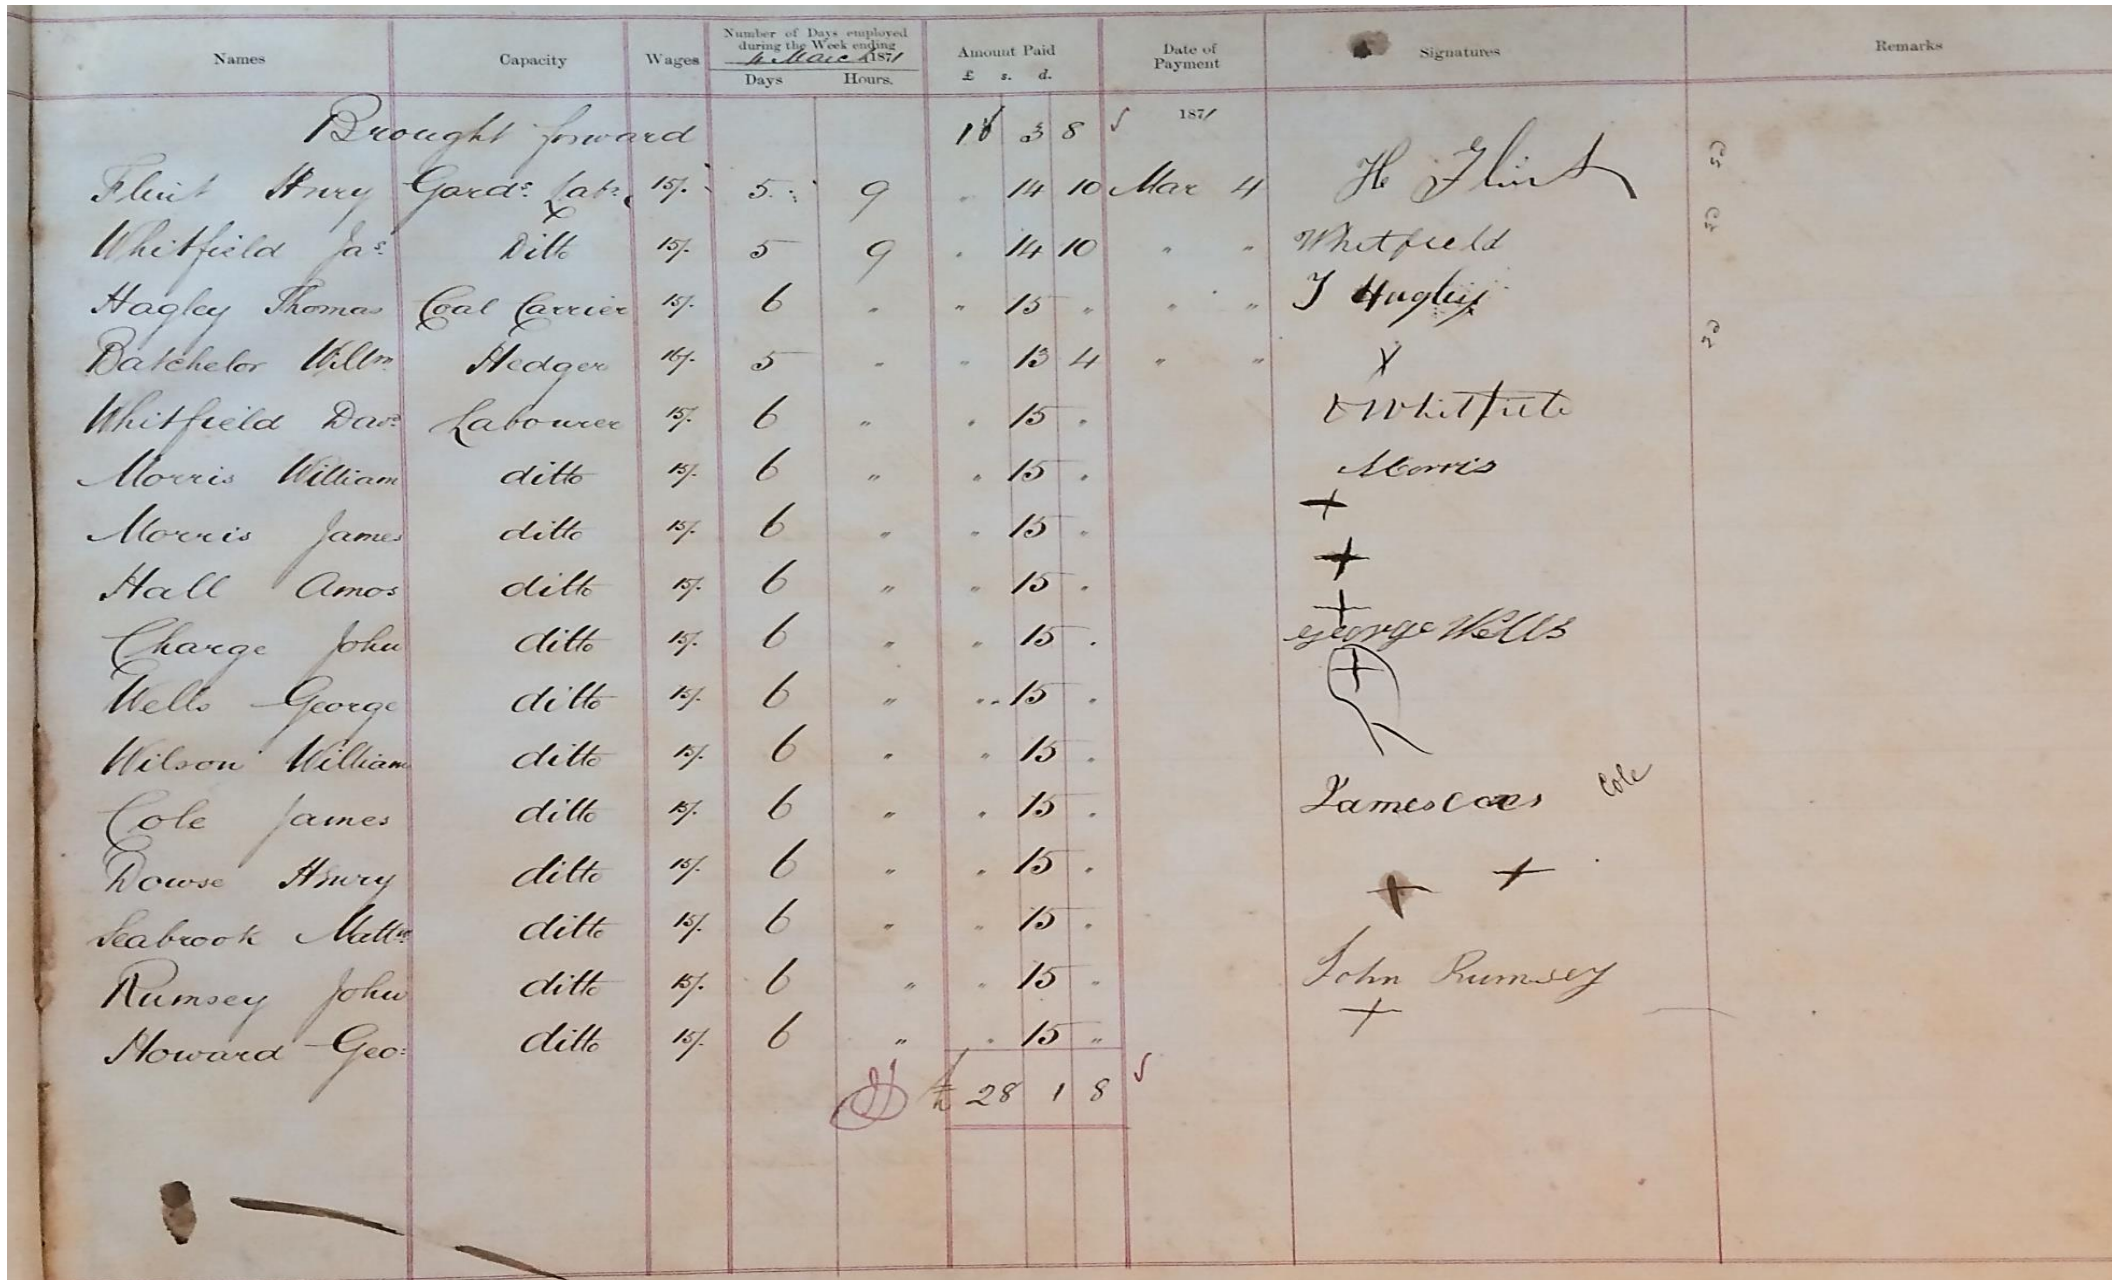 Names Capacity Wages Number of Days employed during the Week ending 4 March 1871 Amount Paid Date of Payment Signatures Remarks
Days Hours. £ s. d.
Brought forward 16 3 8 1871
Flint Henry Gards. Labr. 15/. 5 9 " 14 10 Mar 4 H Flint
Whitfield Jas. Ditto 15/. 5 9 " 14 10 " " Whitfield
Hagley Thomas Coal Carrier 15/. 6 " " 15 " " " T Hagley
Batchelor Willm. Hedger 16/. 5 " " 13 4 " " X
Whitfield Davd. Labourer 15/. 6 " " 15 " D Whitfield
Morris William ditto 15/. 6 " " 15 " Morris
Morris James ditto 15/. 6 " " 15 " +
Hall Amos ditto 15/. 6 " " 15 " +
Charge John ditto 15/. 6 " " 15 " +
Wells George ditto 15/. 6 " " 15 " George Wells
Wilson William ditto 15/. 6 " " 15 " +
Cole James ditto 15/. 6 " " 15 " James Cole
Dowse Henry ditto 15/. 6 " " 15 " +
Seabrook Mattw. ditto 15/. 6 " " 15 " +
Rumsey John ditto 15/. 6 " " 15 " John Rumsey
Howard Geo: ditto 15/. 6 " " 15 " +
£ 28 1 8